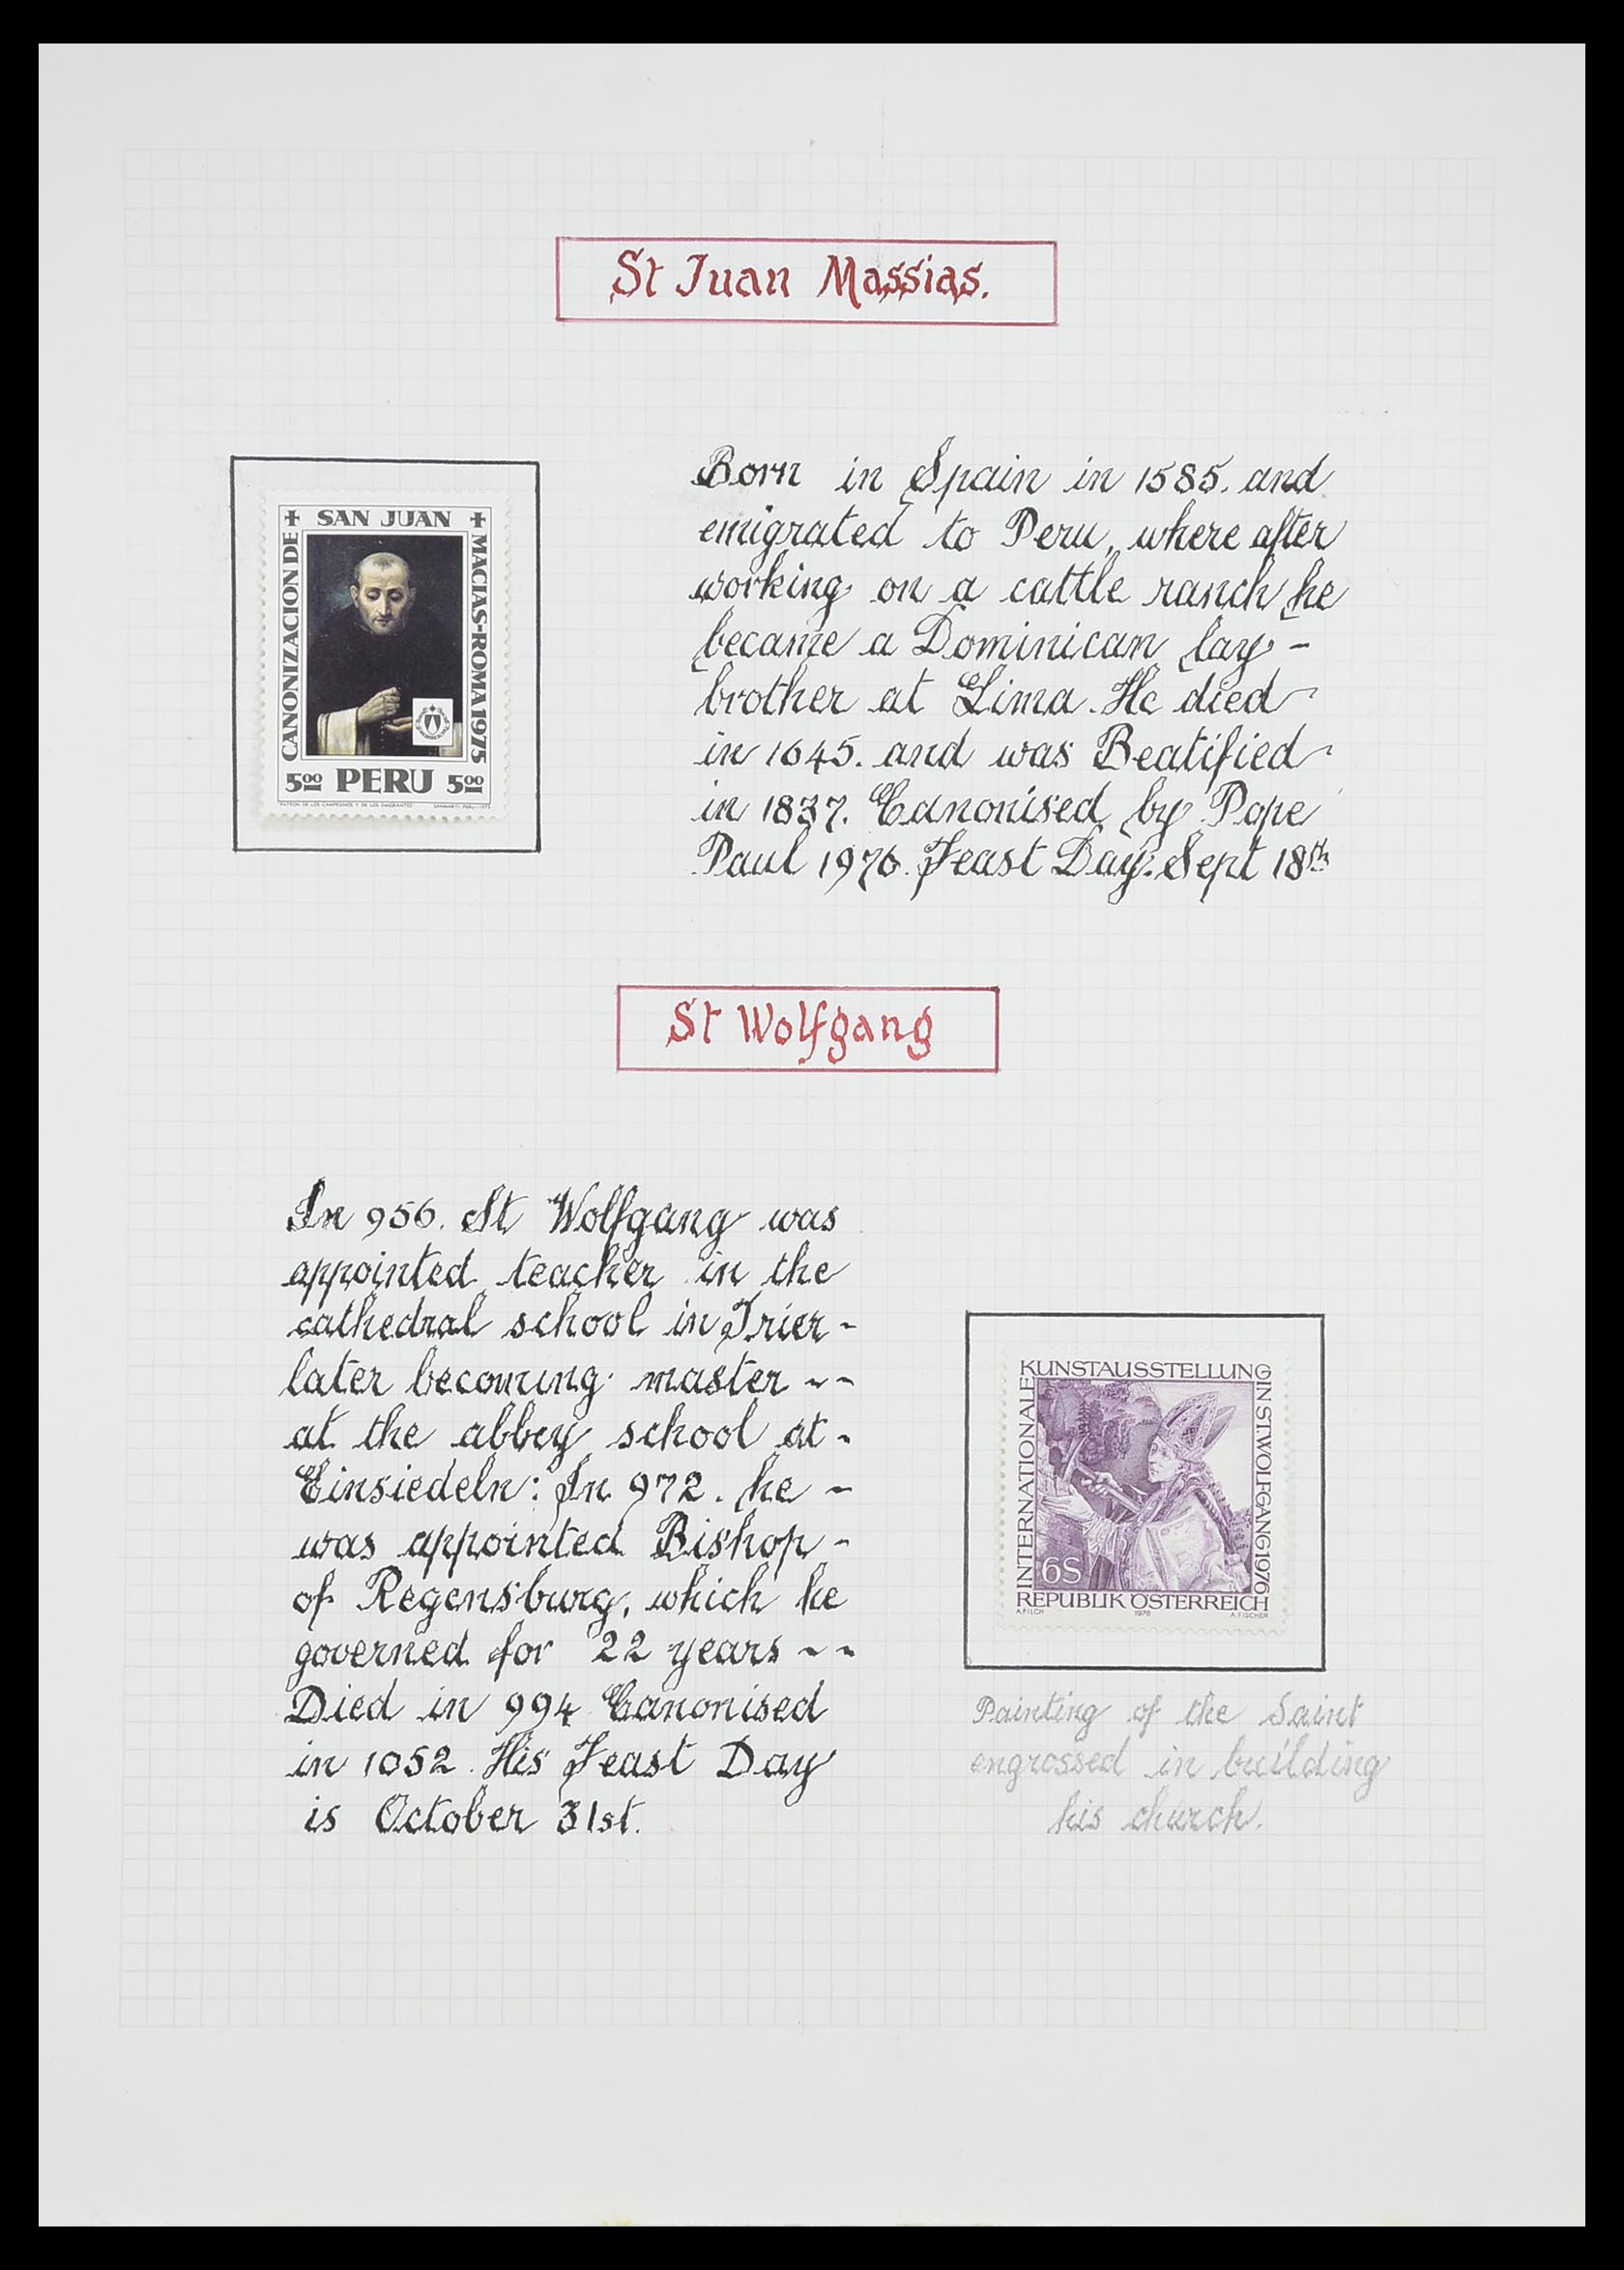 St Juan Massias.
+ SAN JUAN +
CANONIZACION DE
MACIAS-ROMA 1975
5.00 PERU 5.00
Born in Spain in 1585. and
emigrated to Peru, where after
working on a cattle ranch he
became a Dominican lay -
brother at Lima. He died
in 1645. and was Beatified
in 1837. Canonised by Pope
Paul 1976. Feast Day: Sept 18th
St Wolfgang
In 956. St Wolfgang was
appointed teacher in the
cathedral school in Trier -
later becoming master - -
at the abbey school at -
Einsiedeln: In 972. he -
was appointed Bishop -
of Regensburg, which he
governed for 22 years - -
Died in 994 Canonised
in 1052. His Feast Day
is October 31st.
INTERNATIONALE
KUNSTAUSSTELLUNG
IN ST. WOLFGANG 1976
6S
REPUBLIK ÖSTERREICH
A. PILCH 1976 A. FISCHER
Painting of the Saint
engrossed in building
his church.